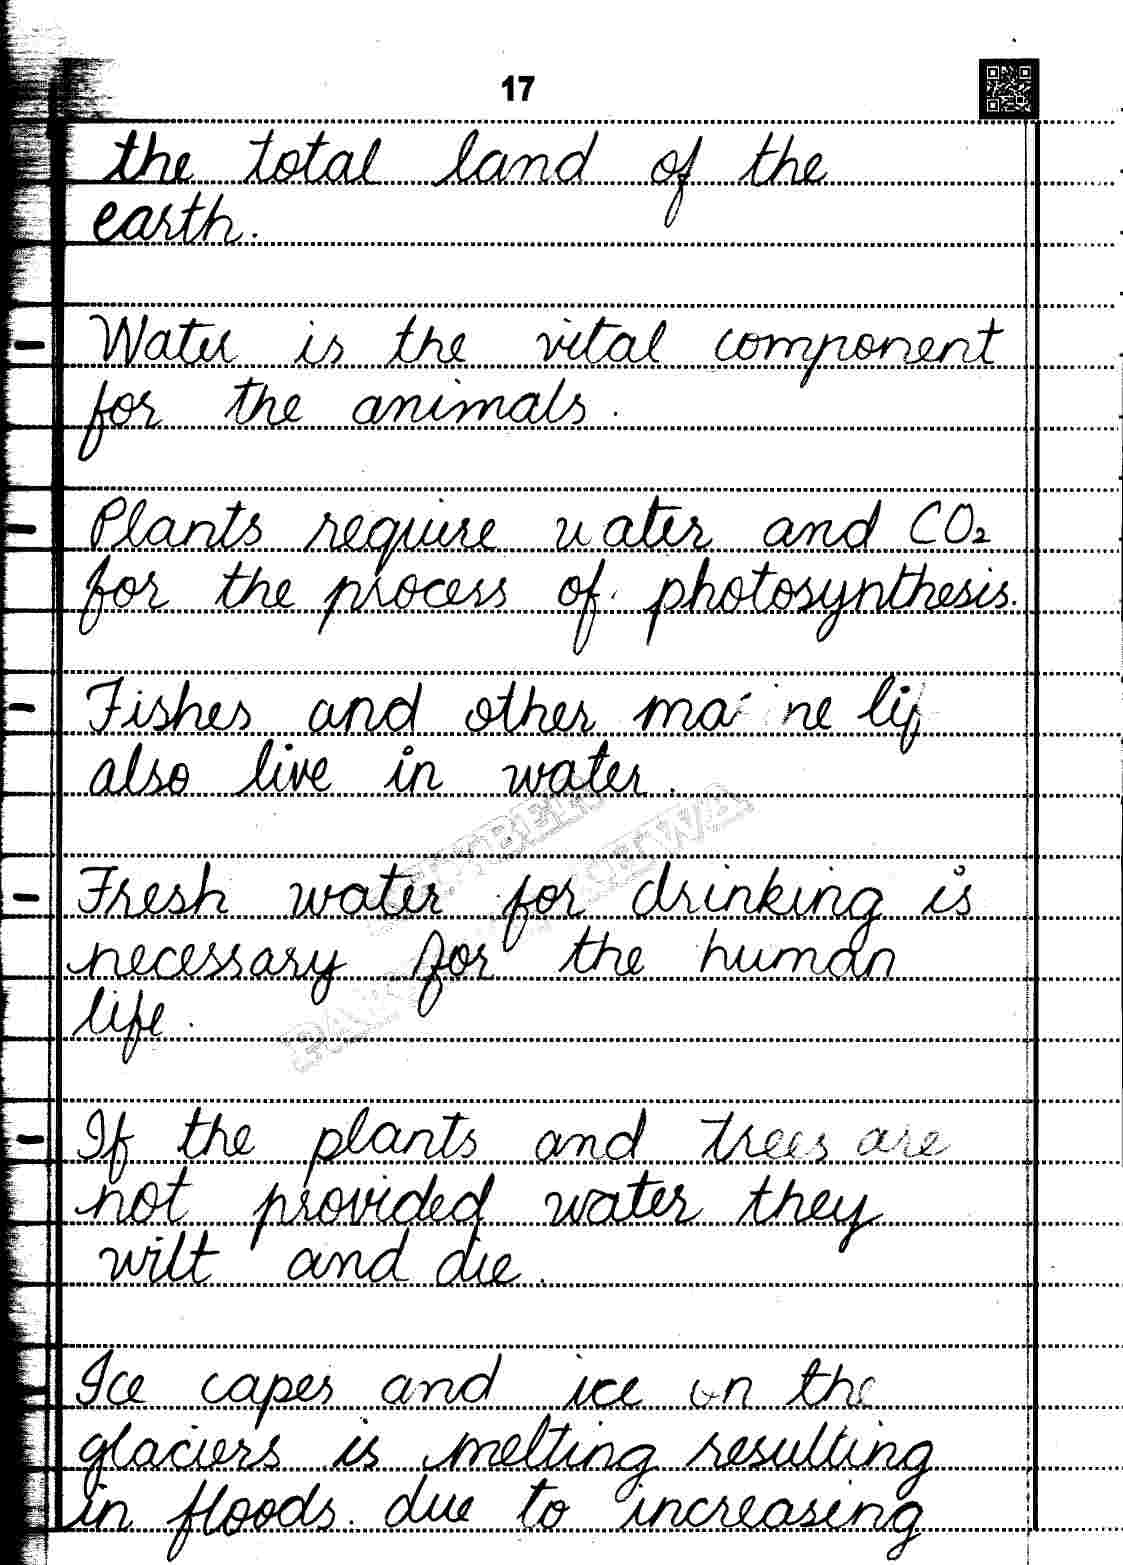 17
the total land of the
earth.
- Water is the vital component
for the animals.
- Plants require water and CO₂
for the process of photosynthesis.
- Fishes and other marine lif
also live in water.
- Fresh water for drinking is
necessary for the human
life.
- If the plants and trees are
not provided water they
wilt and die.
Ice capes and ice on the
glaciers is melting resulting
in floods. due to increasing